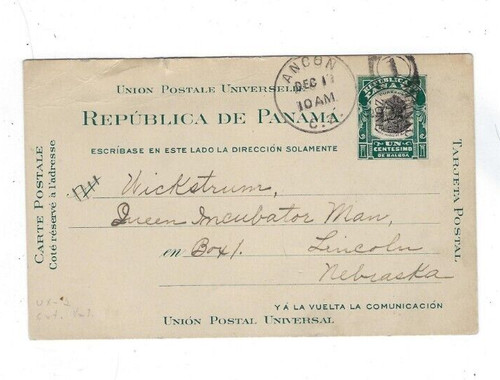 UNION POSTALE UNIVERSELLE
REPÚBLICA DE PANAMÁ
ESCRÍBASE EN ESTE LADO LA DIRECCIÓN SOLAMENTE
CARTE POSTALE
Coté réservé à l'adresse
TARJETA POSTAL
ANCON
DEC 17
10 AM
C.Z.
1
REPUBLICA DE
PANAMA
UN
CENTESIMO
DE BALBOA
Wickstrum,
Queen Incubator Man,
en Box 1. Lincoln
Nebraska
Y Á LA VUELTA LA COMUNICACIÓN
UNIÓN POSTAL UNIVERSAL